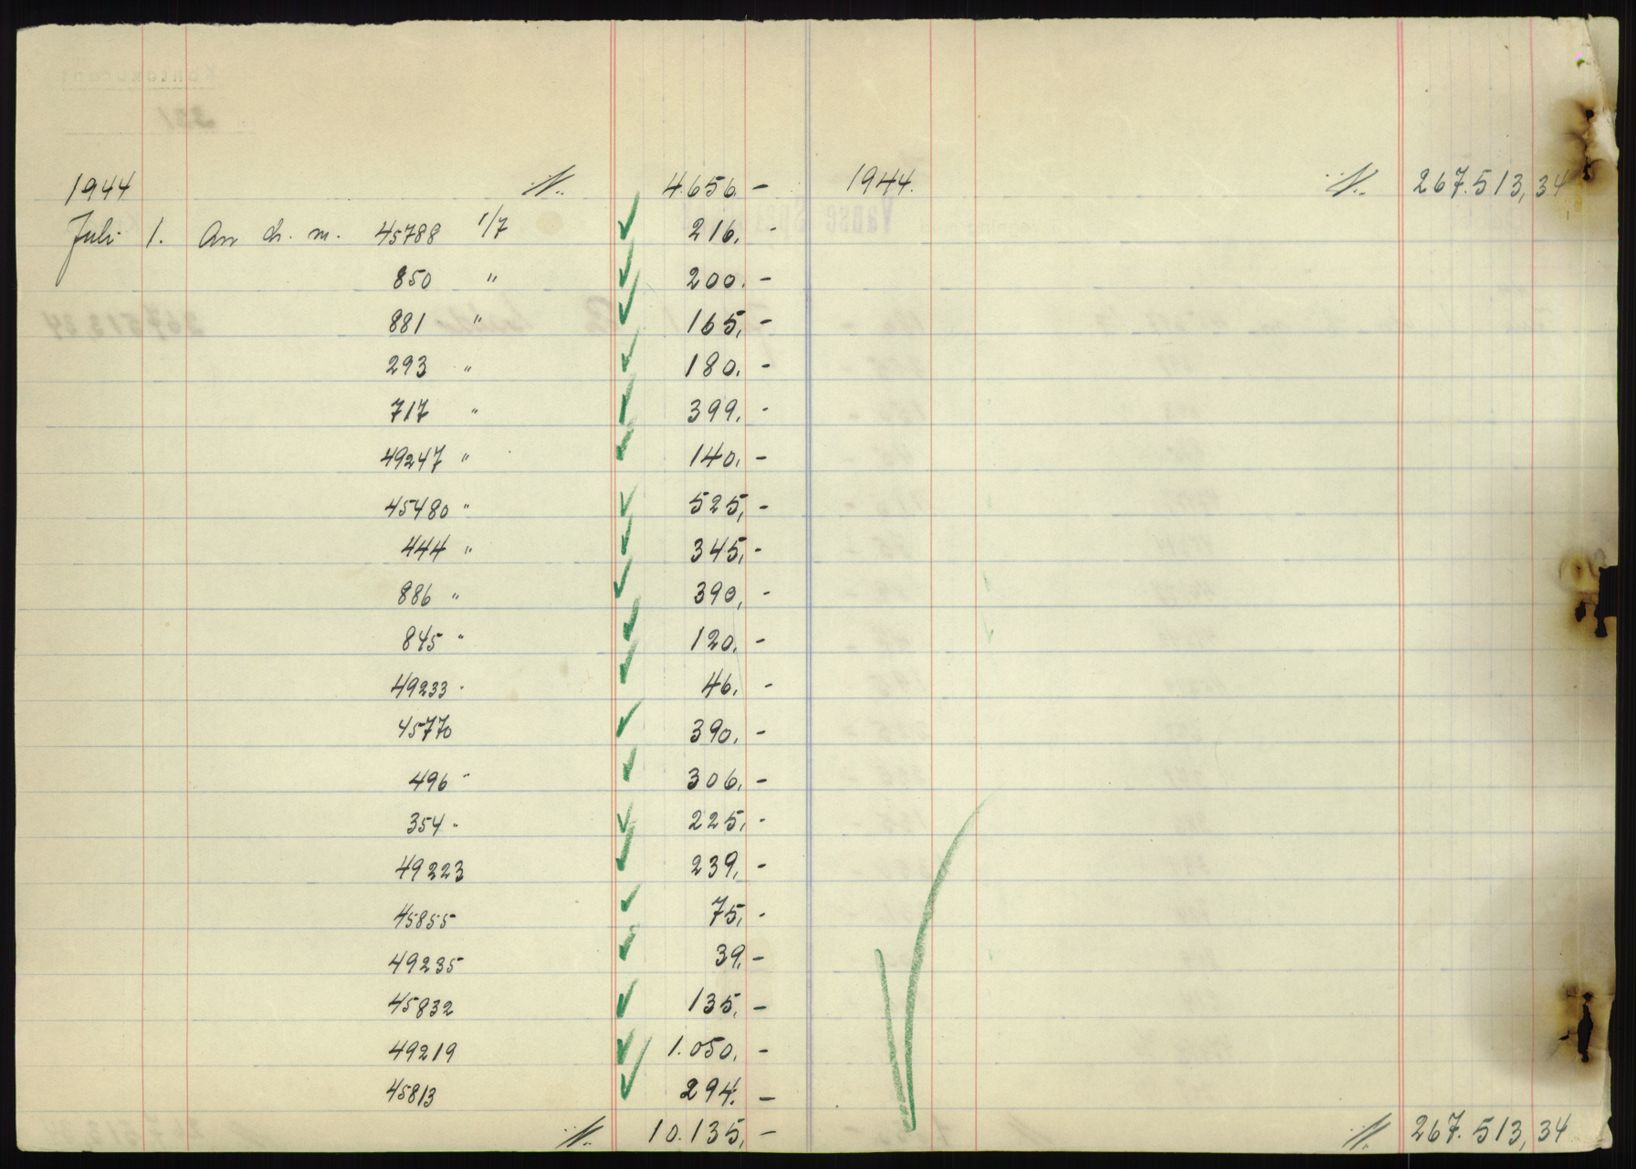 1944 N. 4.656. -
Juli 1. An ch. m. 45788 1/7 216. -
850 " 200. -
881 " 165, -
293 " 180. -
717 " 399. -
49247 " 140. -
45480 " 525, -
444 " 345, -
886 " 390, -
845 " 120. -
49233 - 46. -
45770 390. -
496 - 306. -
354 - 225, -
49223 239, -
45855 75, -
49235 39, -
45832 135, -
49219 1.050. -
45813 294. -
N. 10.135, -
1944. N. 267.513,34
N. 267.513,34